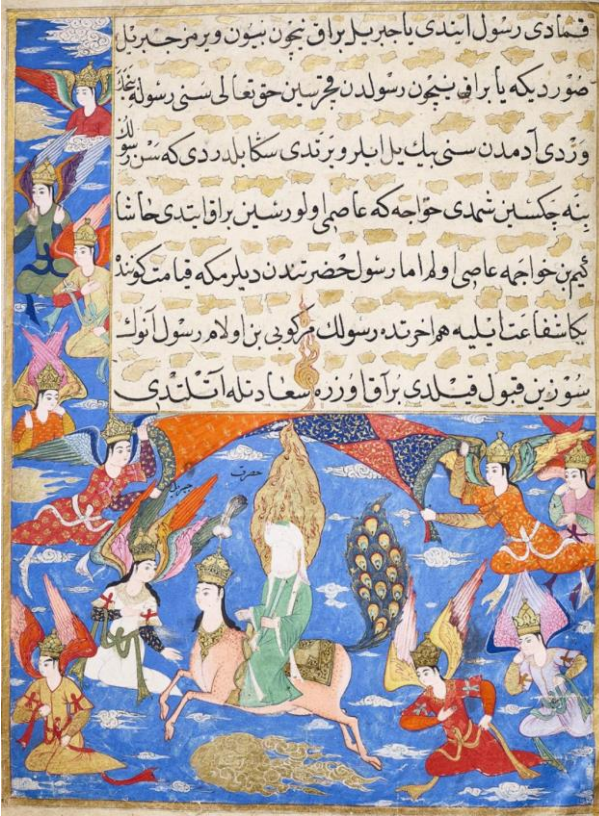 قمادی رسول ایتدی یا جبریل براق نیچون بنیون ویرمز جبرئیل
صوردیکه یا براق نیچون رسولدن قچرسین حق تعالی سنی رسوله
وردی آدمدن سنی بیک ییل ایلرو یرتدی سکا بلدردی که سن رسولك
بنه جکسین شمدی خواجه که عاصمی اولورسین براق ایتدی حاشا
کیم بن خواجمه عاصی اولم اما رسول حضرتندن دیلرم که قیامت کوننده
بکا شفاعت ایلیه هم اخرتده رسولك مرکوبی بن اولام رسول آنوك
سوزین قبول قیلدی براق اوزره سعادتله آتلندی
حضرت
جبریل